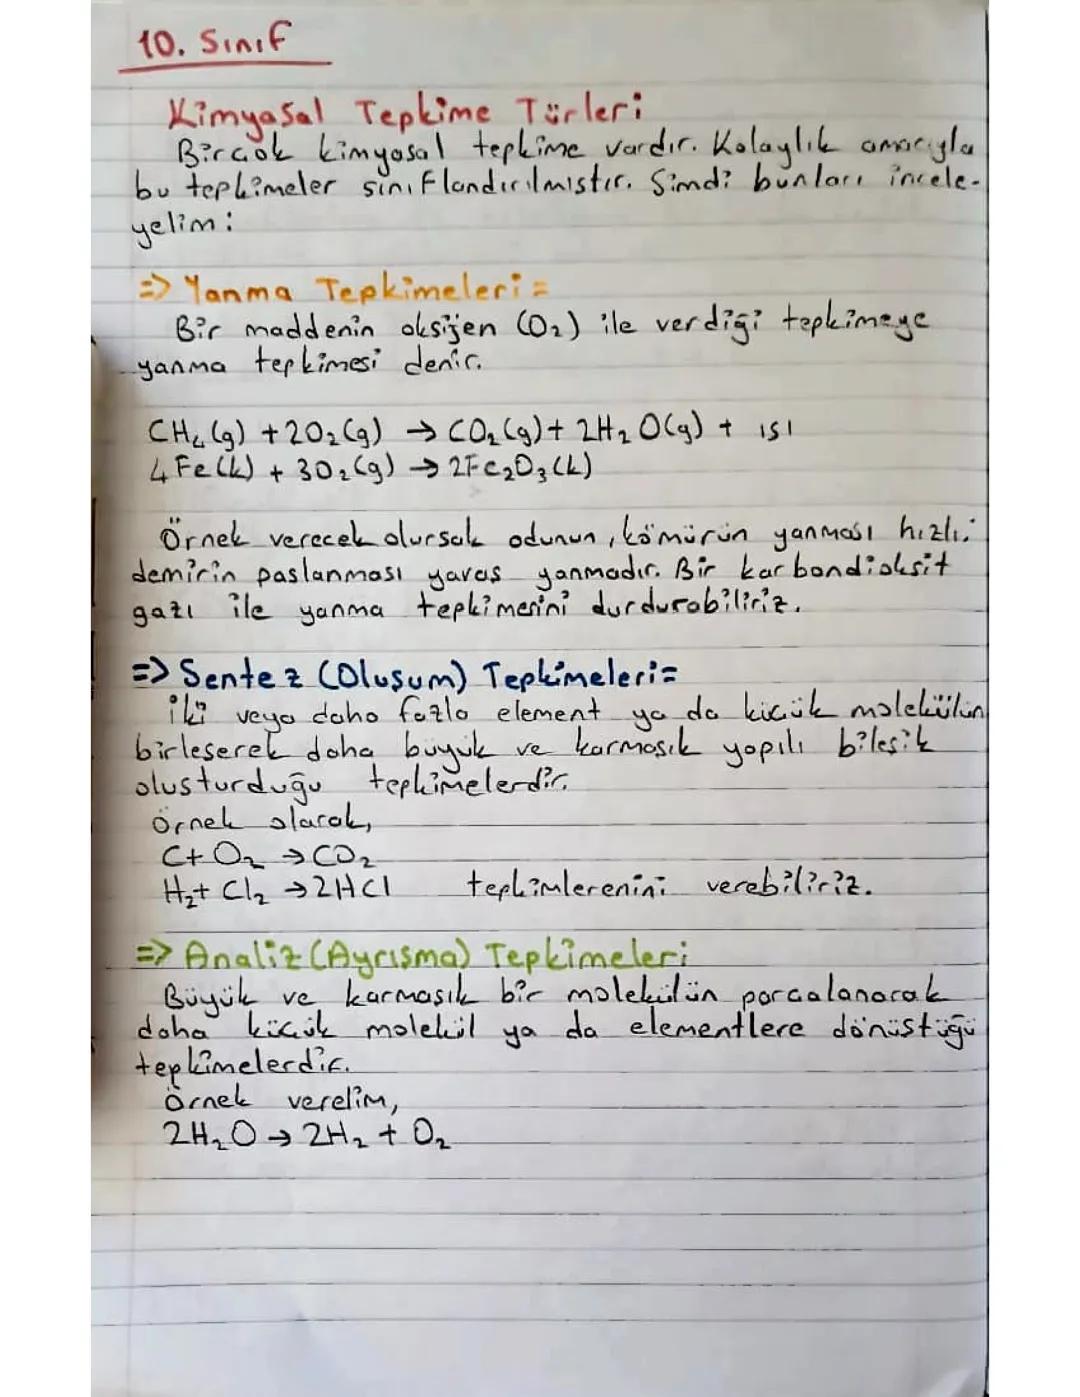 10. Sınıf
Kimyasal Tepkime Türleri
Birçok kimyasal tepkime vardır. Kolaylık amacıyla
bu tepkimeler sınıflandırılmıştır. Şimdi bunları incele-
yelim:
=> Yanma Tepkimeleri =
Bir maddenin oksijen (O₂) ile verdiği tepkimeye
yanma tepkimesi denir.
CH₄(g) + 2O₂(g) → CO₂(g) + 2H₂O(g) + ısı
4Fe(k) + 3O₂(g) → 2Fe₂O₃(k)
Örnek verecek olursak odunun, kömürün yanması hızlı;
demirin paslanması yavaş yanmadır. Bir karbondioksit
gazı ile yanma tepkimesini durdurabiliriz.
=> Sentez (Oluşum) Tepkimeleri=
İki veya daha fazla element ya da küçük molekülün
birleşerek daha büyük ve karmaşık yapılı bileşik
oluşturduğu tepkimelerdir.
Örnek olarak,
C + O₂ → CO₂
H₂ + Cl₂ → 2HCl tepkimlerenini verebiliriz.
=> Analiz (Ayrışma) Tepkimeleri
Büyük ve karmaşık bir molekülün parçalanarak
daha küçük molekül ya da elementlere dönüştüğü
tepkimelerdir.
Örnek verelim,
2H₂O → 2H₂ + O₂